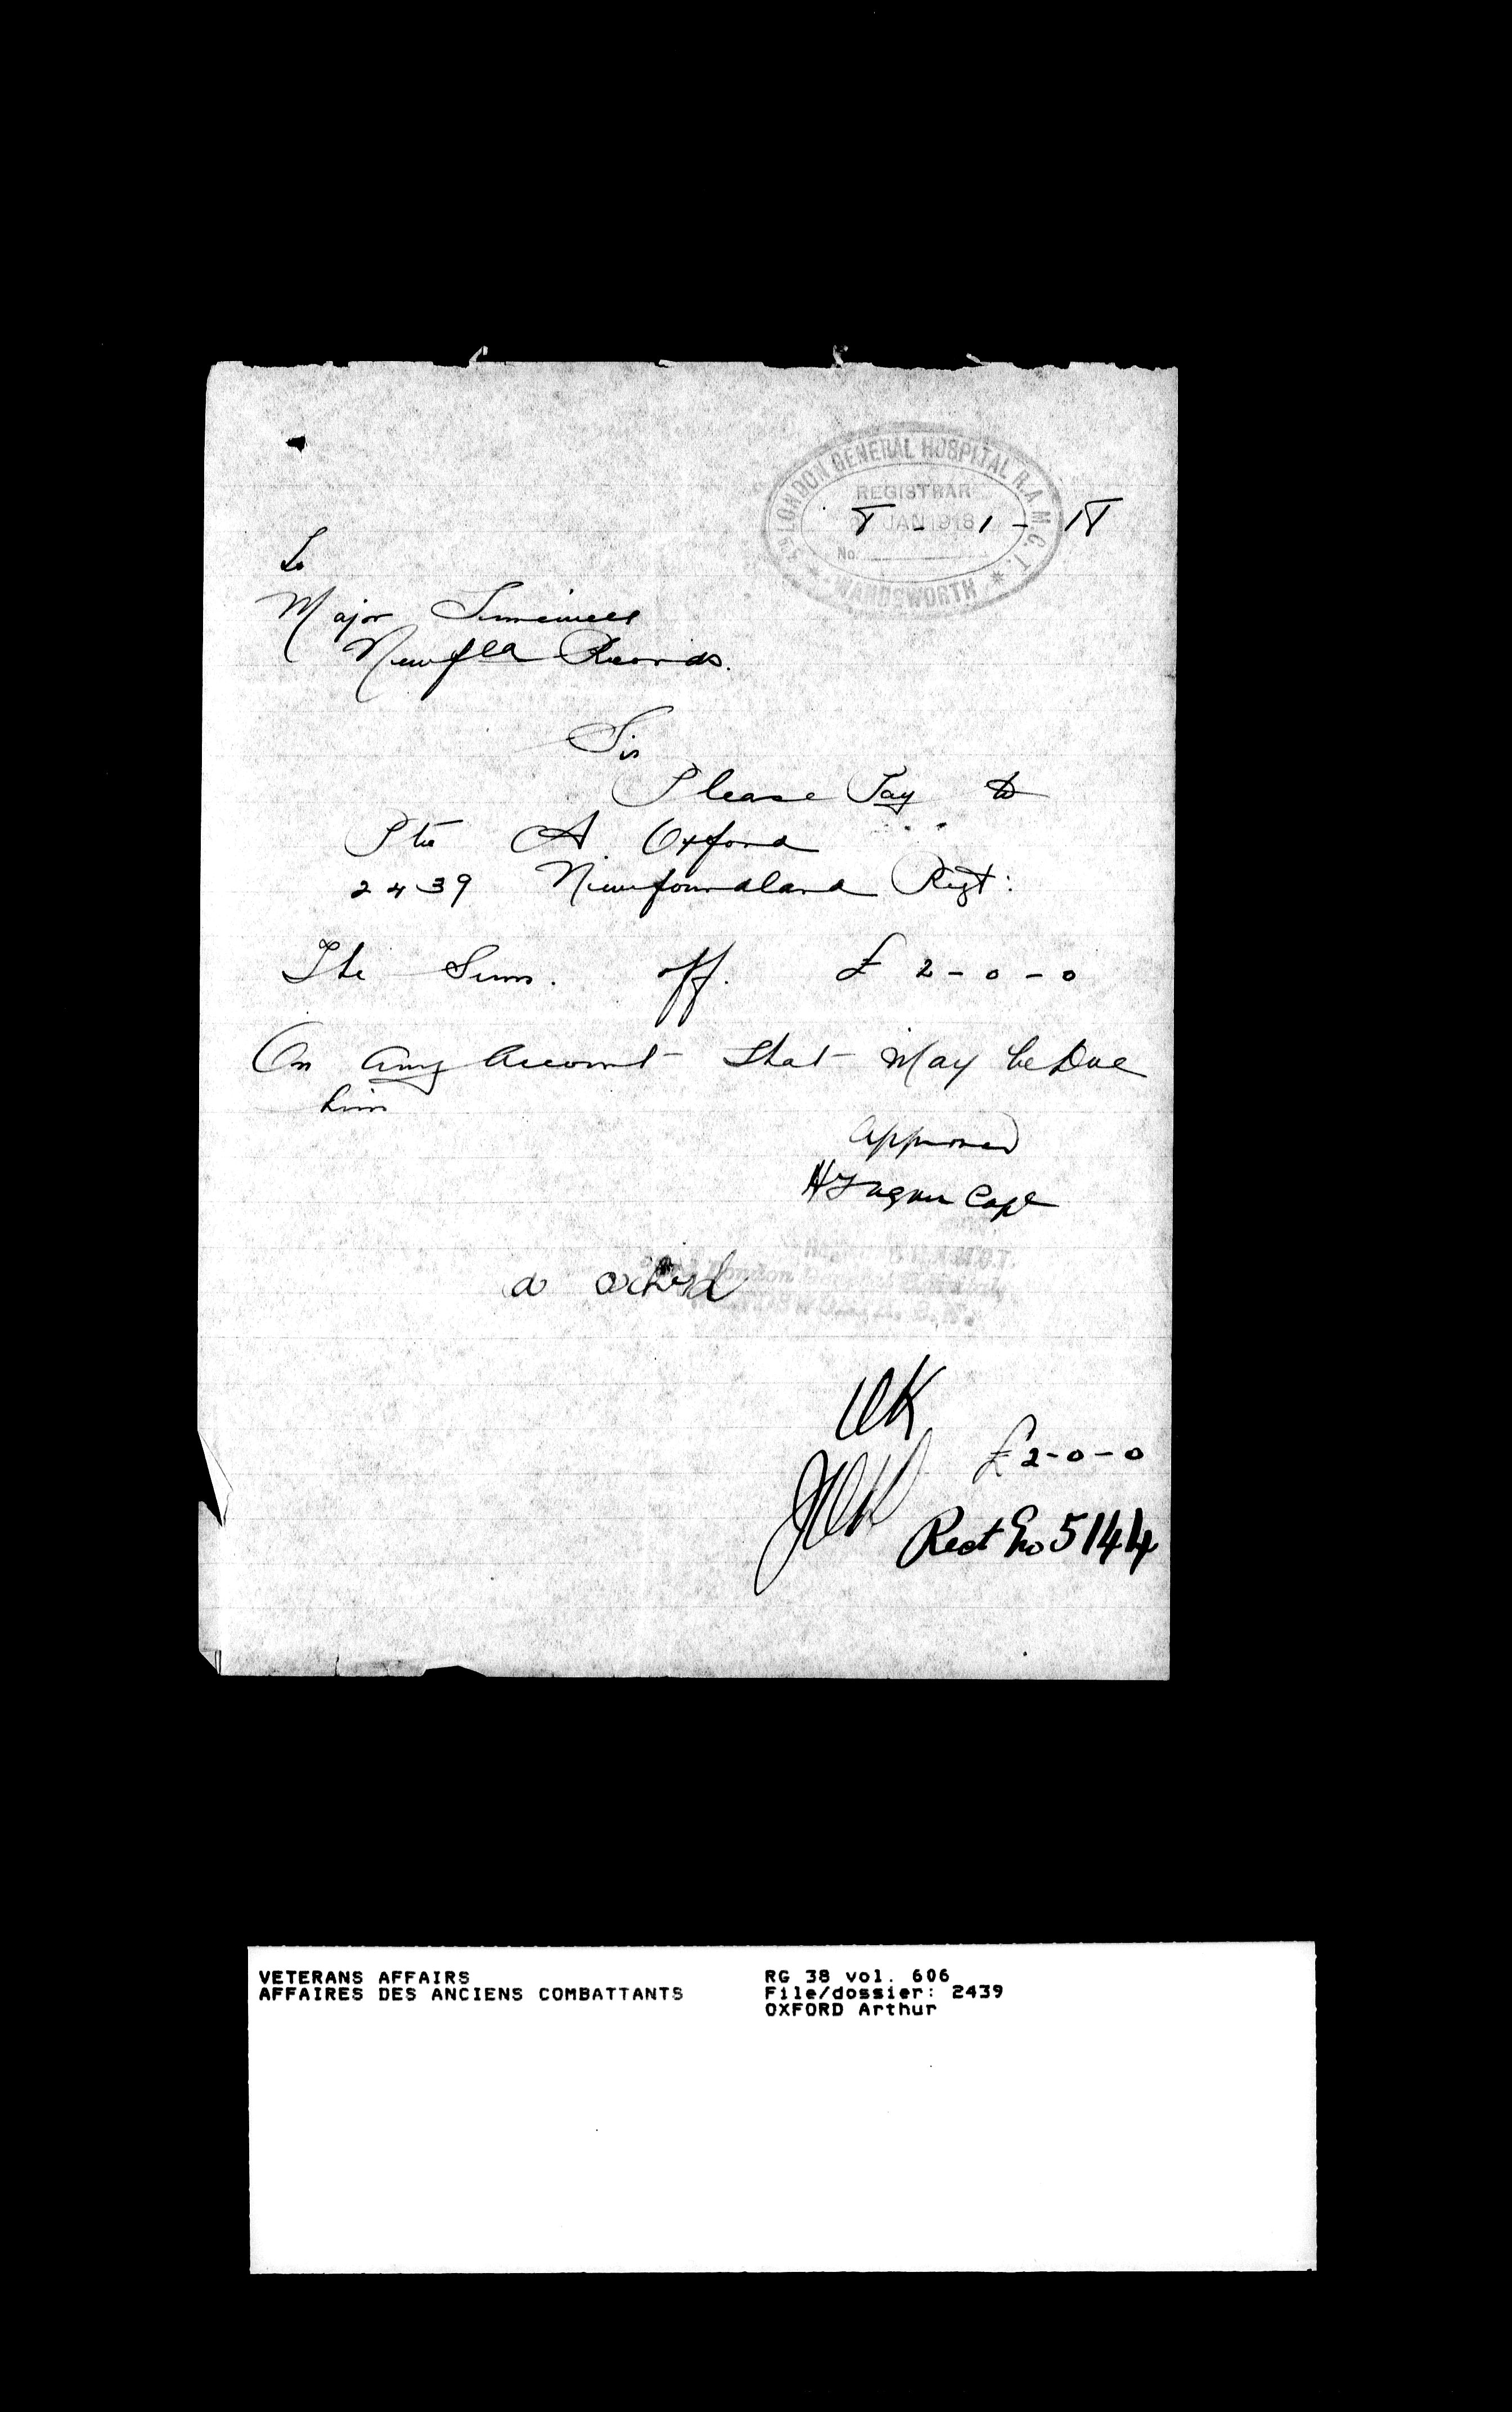 3RD LONDON GENERAL HOSPITAL R.A.M.C.T.
REGISTRAR
JAN 1918
No.
* WANDSWORTH *
8 - 1 - 18
To
Major
Newfld Records.
Sir
Please Pay to
Pte A. Oxford
2439 Newfoundland Regt:
The Sum. off. £ 2-0-0
On any Account that May be Due
him
Approved
Capt
R.A.M.C.T.
London General Hospital,
a oxford
OK
£2-0-0
Rect No 5144
VETERANS AFFAIRS
AFFAIRES DES ANCIENS COMBATTANTS
RG 38 vol. 606
File/dossier: 2439
OXFORD Arthur